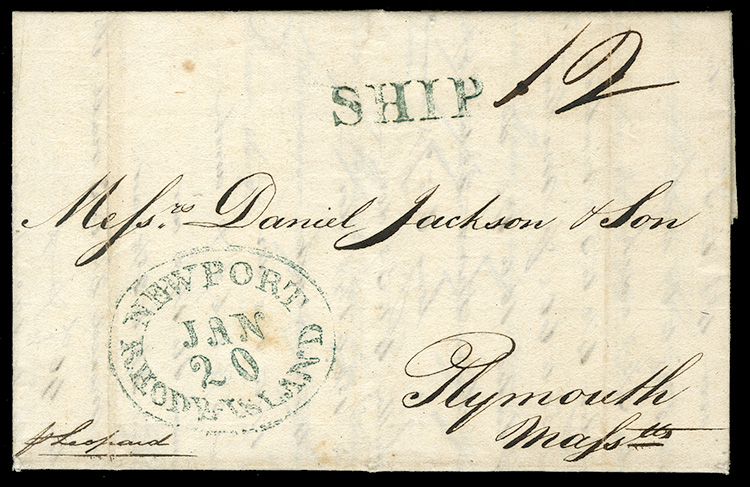 SHIP 12
Messrs Daniel Jackson & Son
NEWPORT
JAN
20
RHODE-ISLAND
Plymouth
Masstts
p Leopard